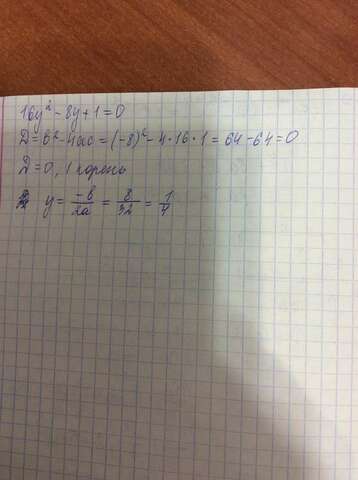 16y² - 8y + 1 = 0
D = b² - 4ac = (-8)² - 4·16·1 = 64 - 64 = 0
D = 0, 1 корень
y = -b/2a = 8/32 = 1/4